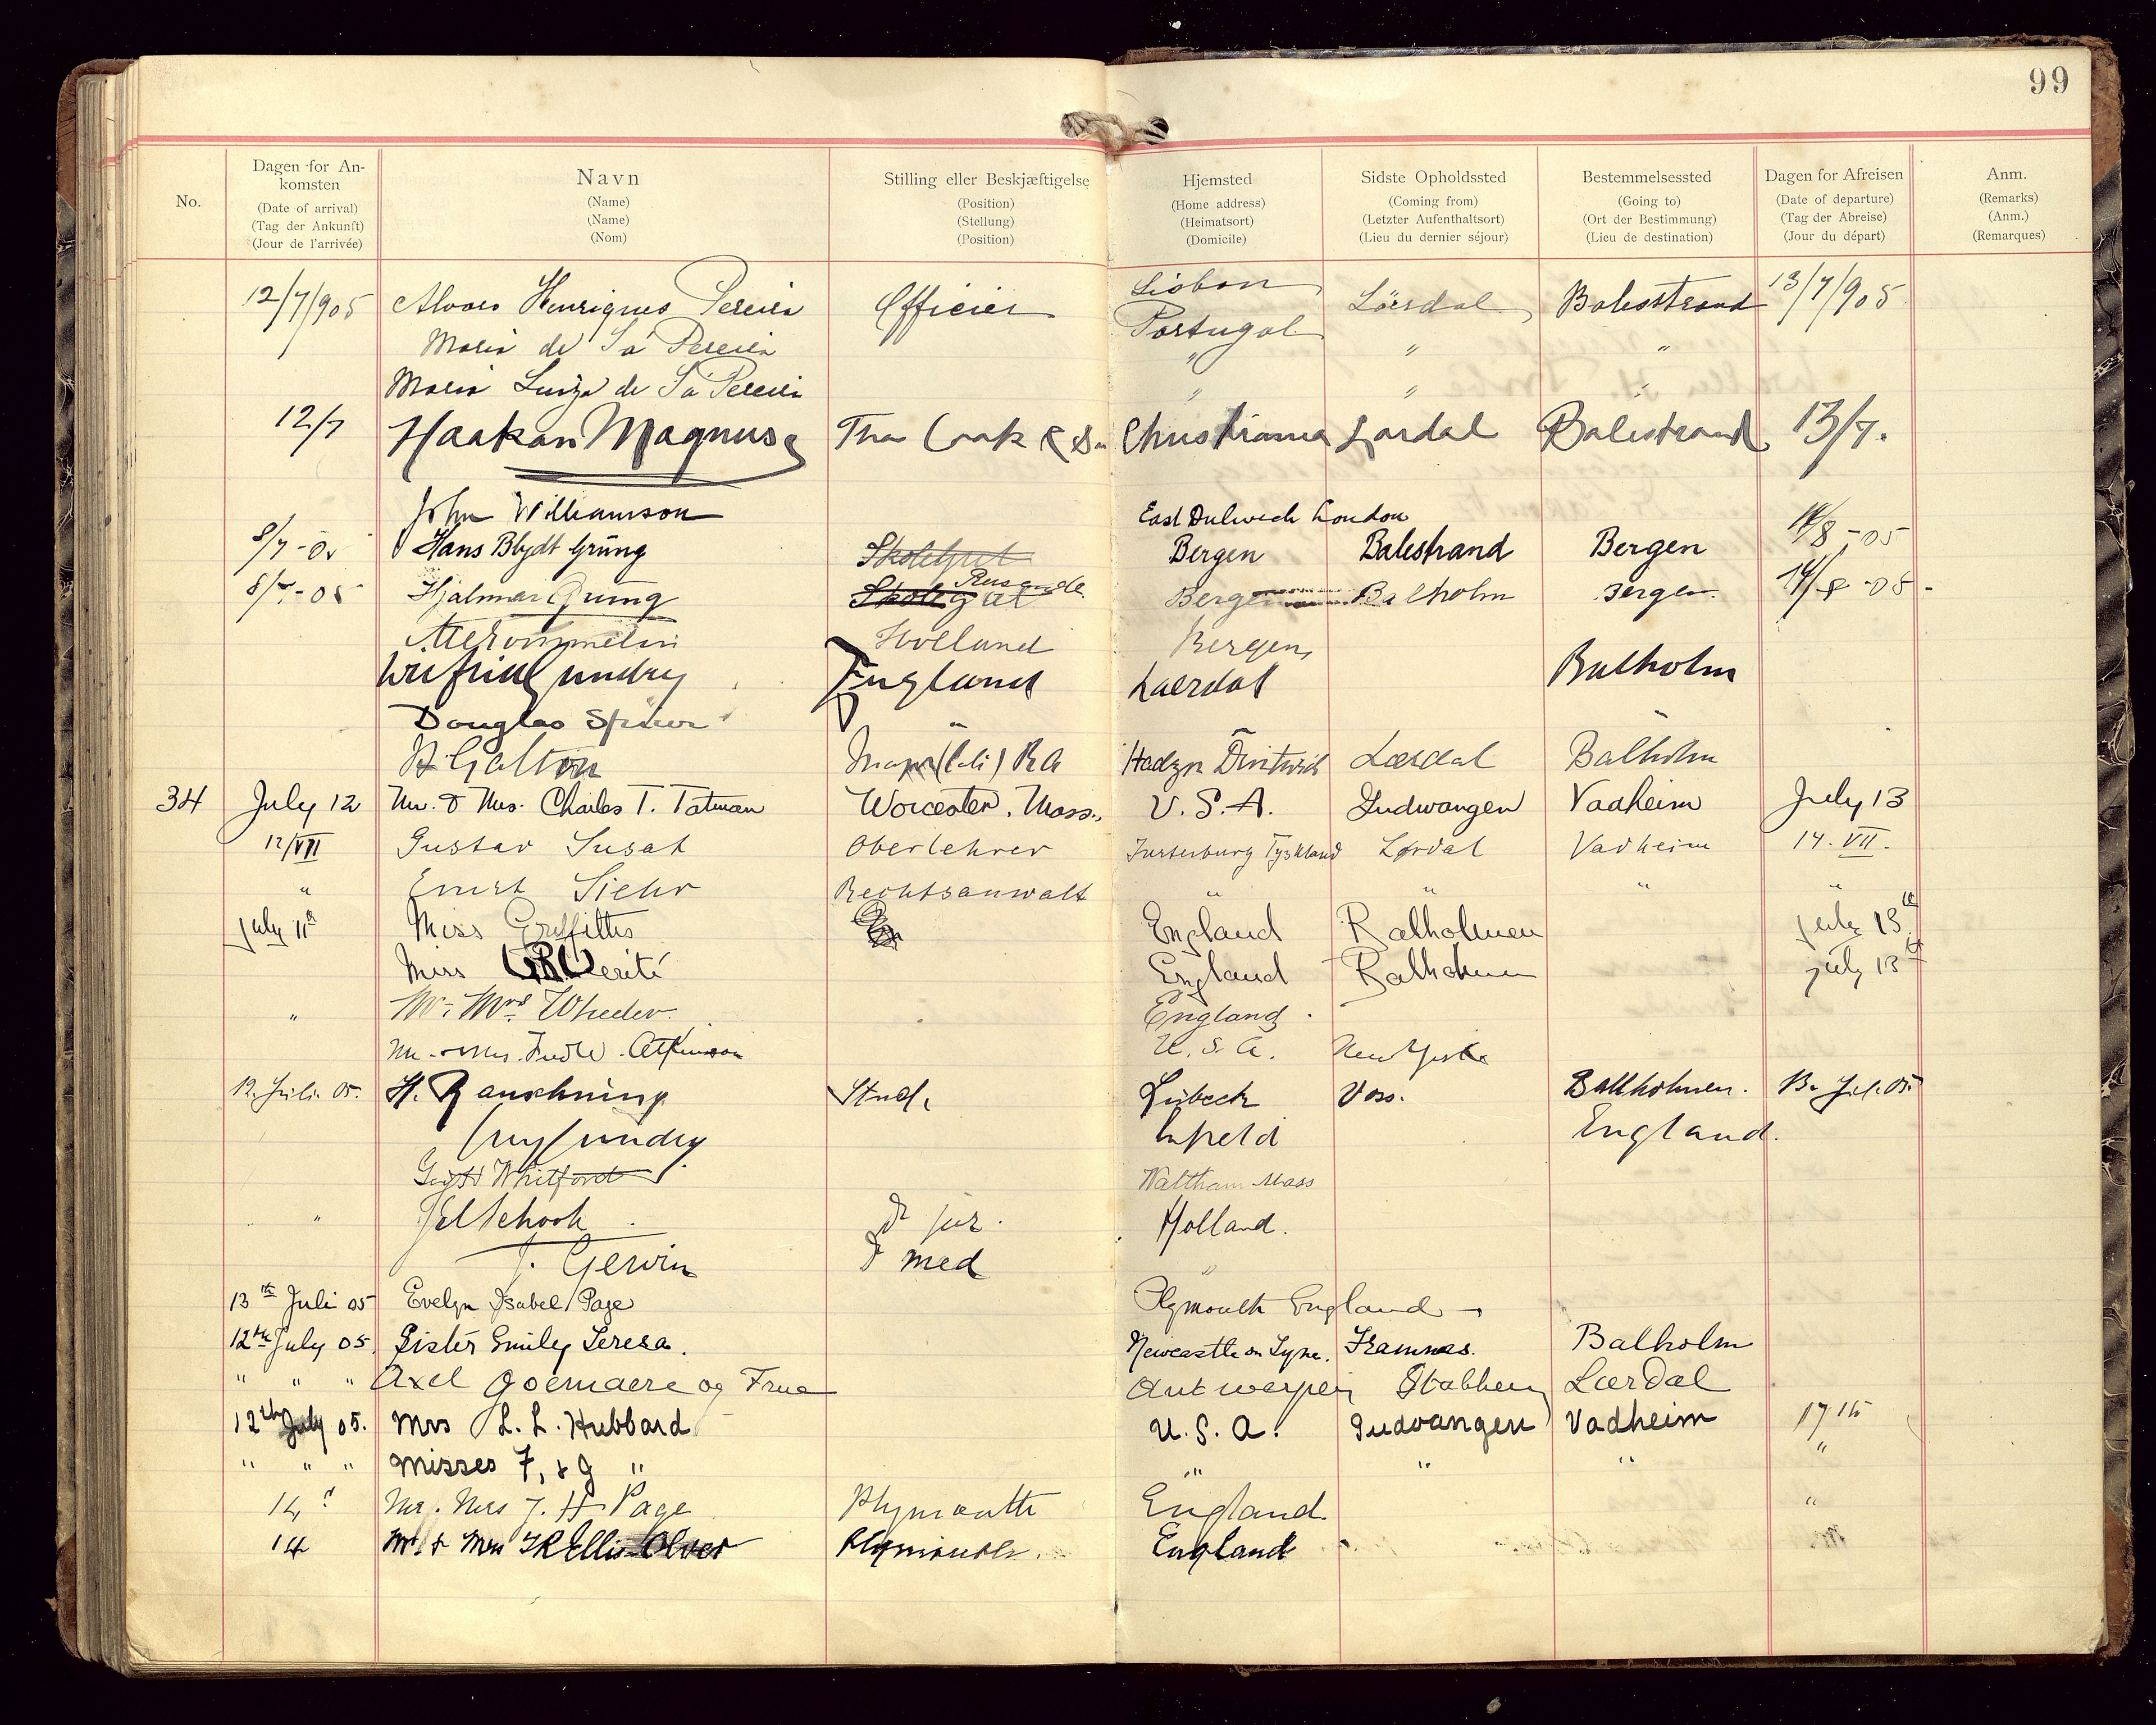 99
No. Dagen for An-komsten Navn Stilling eller Beskjæftigelse Hjemsted Sidste Opholdssted Bestemmelsessted Dagen for Afreisen Anm.
(Date of arrival) (Name) (Position) (Home address) (Coming from) (Going to) (Date of departure) (Remarks)
(Tag der Ankunft) (Name) (Stellung) (Heimatsort) (Letzter Aufenthaltsort) (Ort der Bestimmung) (Tag der Abreise) (Anm.)
(Jour de l'arrivée) (Nom) (Position) (Domicile) (Lieu du dernier séjour) (Lieu de destination) (Jour du départ) (Remarques)
12/7/905 Henriques Pereira Officier Lisbon Portugal Lärdal Balestrand 13/7/905
Maria de Sá Pereira " " "
Maria Luiza de Sá Pereira " " "
12/7 Haakan Magnus Christiania Lardal Balestrand 13/7.
John Williamson East Dulwich London
Hans Blydt Grüng Bergen Balestrand Bergen
Hjalmar Grüng Skolegut Reisende Bergen Balholm Bergen
Holland Bergen
England Laerdal Balholm
Douglas "
Galton Lærdal Balholm
34 July 12 Mr. & Mrs. Charles T. Tatman Worcester, Mass., U.S.A. Gudwangen Vadheim July 13
12/VII Gustav Susat Oberlehrer Insterburg Tyskland Lørdal Vadheim 14. VII.
" Ernst Siehr Rechtsanwalt " " " "
July 11th Miss Griffiths England Balholmen July 13th
Miss Verité England Balholmen July 13th
" Mr. Mrs. Wheeler England.
Mr. & Mrs. Fred W. Atkinson U.S.A. New York
12. Juli. 05. H. Rauschning Stud. Lübeck Voss. Balholmen. 13. Jul. 05.
England.
Whitford Waltham Mass
" Schook Dr jur. Holland.
J. Gerwin Dr med "
13th Juli 05 Evelyn Isabel Page Plymouth England
12th July 05. Sister Emily Teresa. Newcastle on Tyne. Framnes. Balholm
" " " Axel Goemaere og Frue Antwerpen Stabben Lærdal
12th July 05. Mrs L. L. Hubbard U.S.A. Gudvangen Vadheim 17th
" " " Misses F, & G " " " " "
14 Mr. Mrs J. H Page Plymouth England. "
14 Mr. & Mrs Ellis Plymouth. England